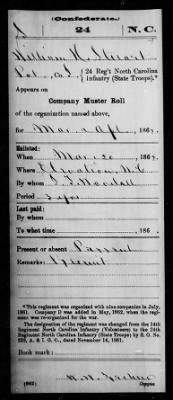 (Confederate.)
24 N.C.
William H. Stewart
Pvt., Co. I, 24 Reg't North Carolina
Infantry (State Troops).*
Appears on
Company Muster Roll
of the organization named above,
for Mar. & Apl., 186
Enlisted:
When Mar. 20, 186
Where N.C.
By whom Woodall
Period 3 yrs
Last paid:
By whom
To what time , 186 .
Present or absent Present
Remarks: Present
*This regiment was organized with nine companies in July,
1861. Company D was added in May, 1862, when the regi-
ment was re-organized for the war.
The designation of the regiment was changed from the 14th
Regiment North Carolina Infantry (Volunteers) to the 24th
Regiment North Carolina Infantry (State Troops) by S. O. No.
222, A. & I. G. O., dated November 14, 1861.
Book mark:
(642)
Copyist.